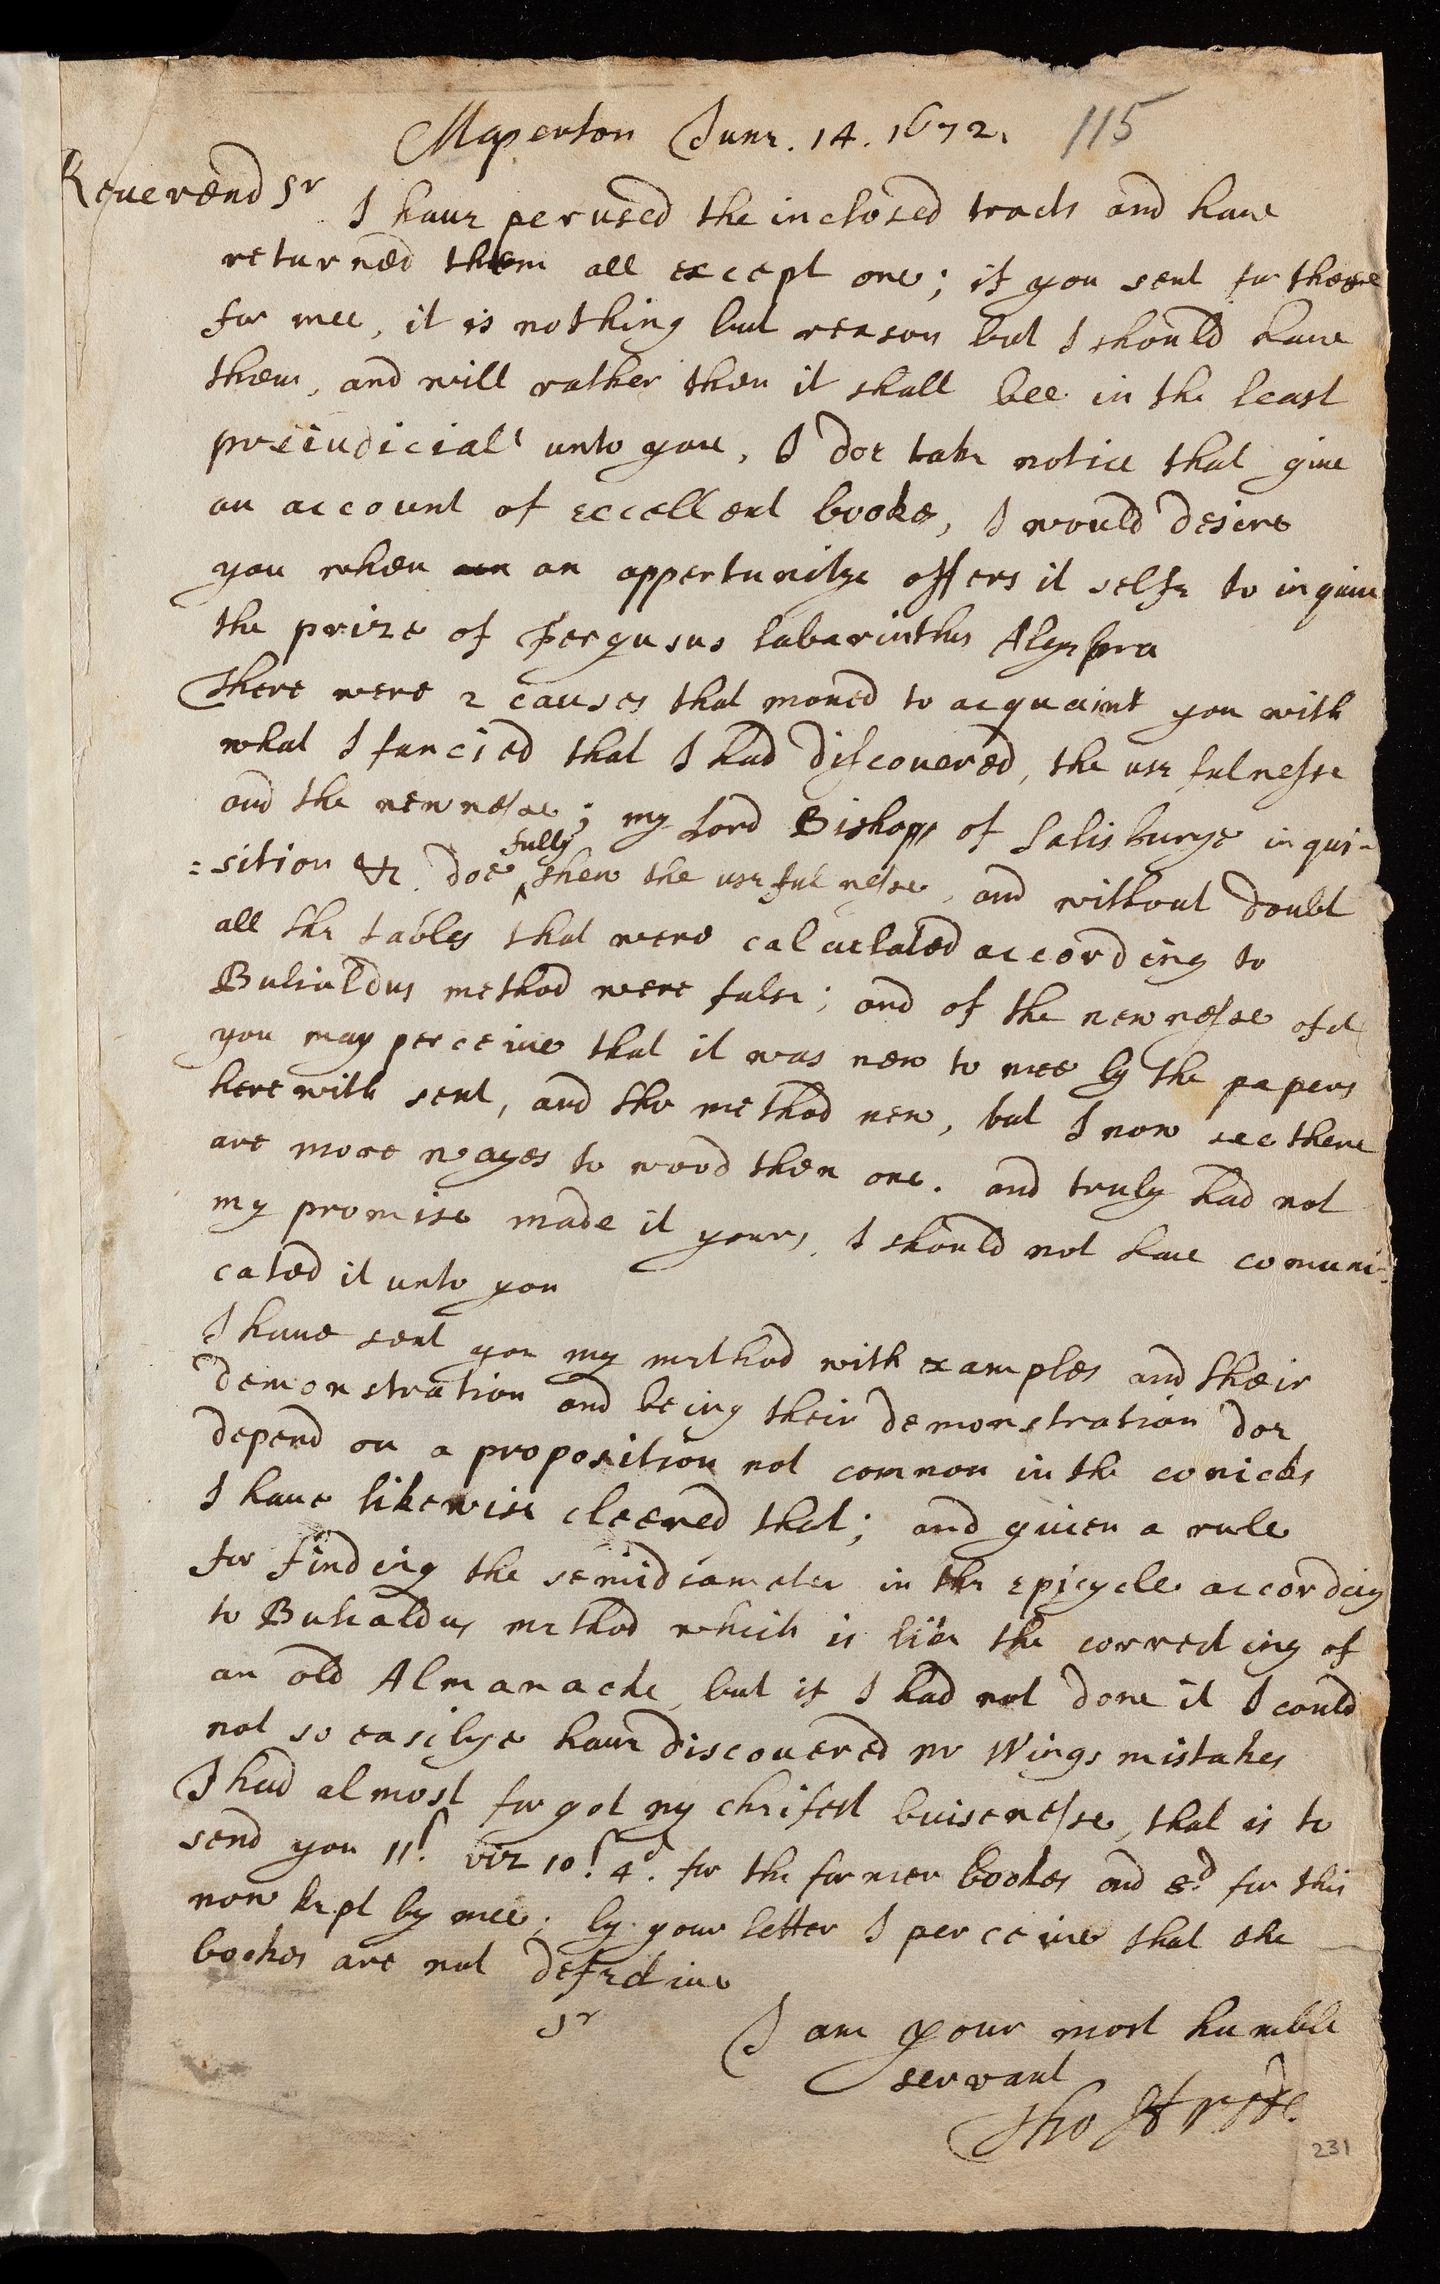 Maperton June. 14. 1672. 115
Reverend Sr I haue perused the inclosed tracts and haue
returned them all except one; if you sent for them
for mee, it is nothing but reason but I should haue
them, and will rather then it shall bee in the least
preiudiciall unto you, I doe take notice that giue
an account of eccellent bookes, I would desire
you when an oppertunitye offers it selfe to inquire
the prize of Fergusus labarinthus Algebra
There were 2 causes that moued to acquaint you with
what I fancied that I had discouered, the usefulnesse
and the newnesse; my Lord Bishope of Salisburye inqui-
=sition &c. doe fully shew the usefulnesse, and without doubt
all the tables that were calculated according to
Bulialdus method were false; and of the newnesse of it
you may perceiue that it was new to mee by the papers
herewith sent, and the method new, but I now see there
are more wayes to wood then one. and truly had not
my promise made it yours, I should not haue comuni-
cated it unto you
I haue sent you my method with examples and their
demonstration and being their demonstration doe
depend on a proposition not common in the conicks
I haue likewise cleered that; and giuen a rule
for finding the semidiameter in the epicycle according
to Bulialdus method which is like the correcting of
an old Almanacke, but if I had not done it I could
not so easilye haue discouered mr Wings mistakes
I had almost forgot my chifest buisenesse, that is to
send you 11s. viz 10s. 4d. for the former bookes and 8d for this
now kept by mee; by your letter I perceiue that the
bookes are not defectiue
Sr
I am your most humble
servant
Tho
231